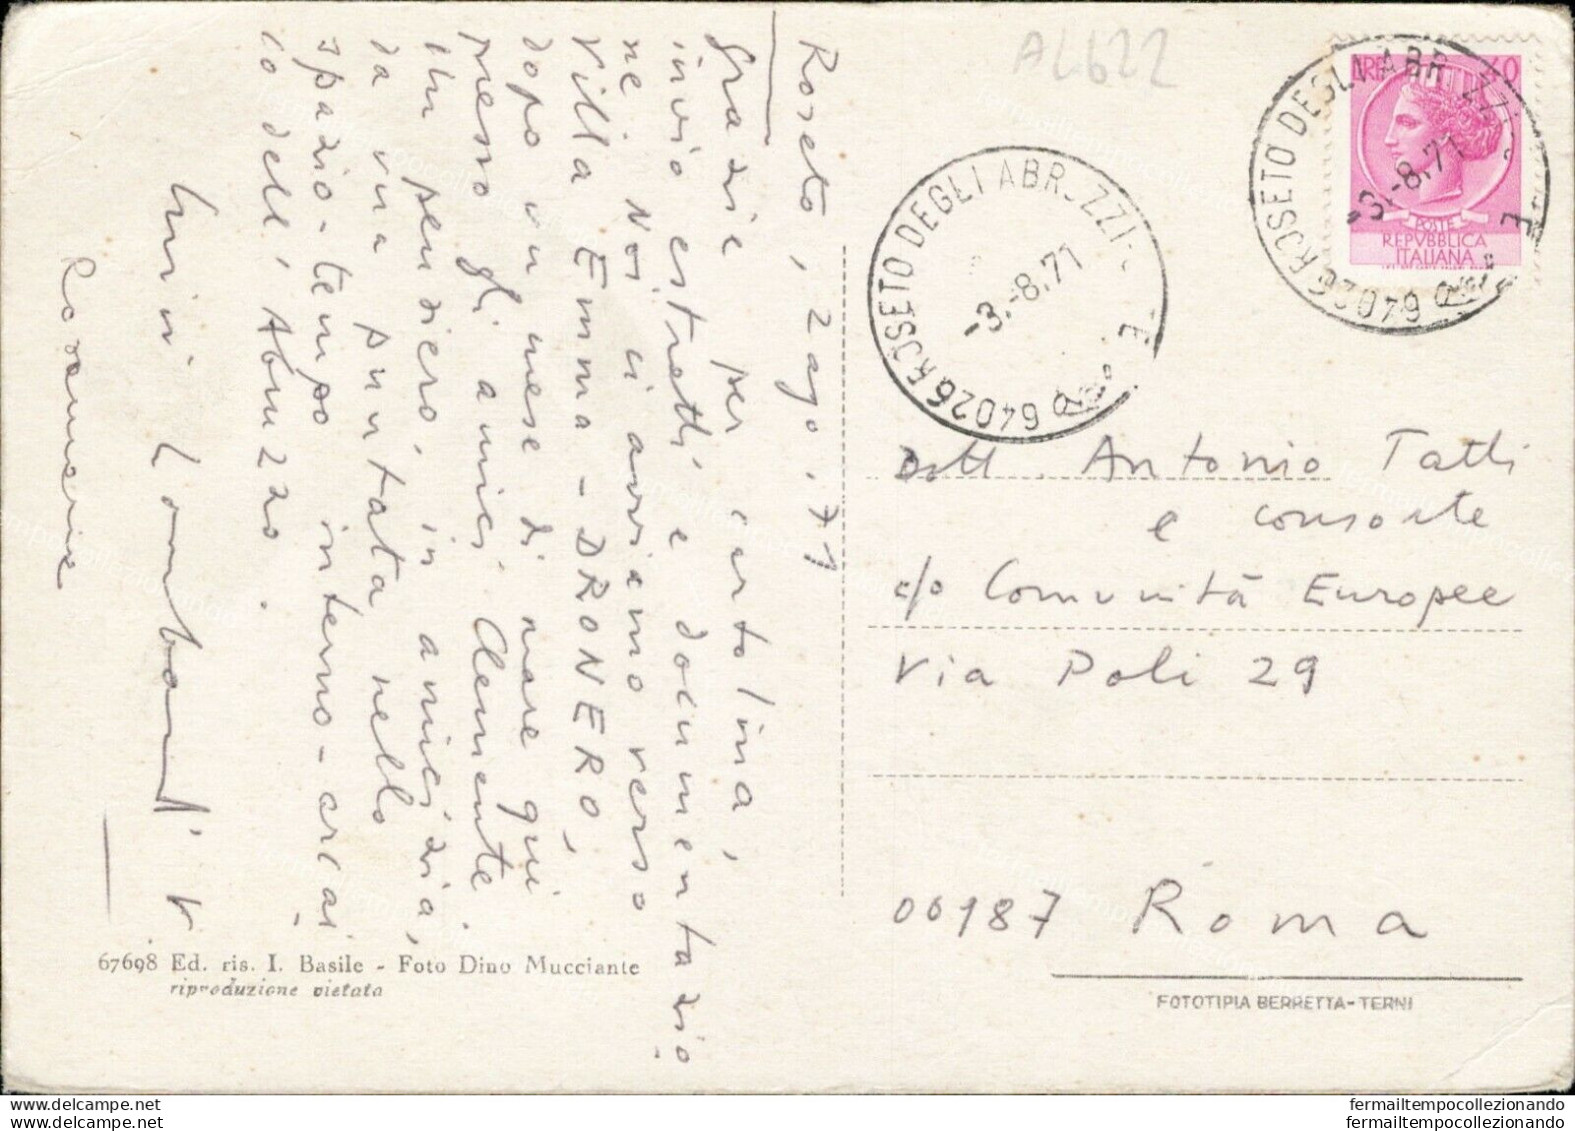 AL622
Roseto, 2 ago. 71
Grazie per cartolina,
invio estratti e documentazio
ne. Noi ci avviamo verso
Villa Emma - DRONERO,
dopo un mese di mare qui
presso gli amici Clemente.
Un pensiero, in amicizia,
da una puntata nello
spazio-tempo interno-arcai
co dell'Abruzzo.
Lombardi
67698 Ed. ris. I. Basile - Foto Dino Mucciante
riproduzione vietata
LIRE
POSTE
REPVBBLICA
ITALIANA
64026 ROSETO DEGLI ABRUZZI
-3.-8.71
64026 ROSETO DEGLI ABRUZZI
-3.-8.71
Dott. Antonio Tatti
e consorte
c/o Comunità Europee
Via Poli 29
00187 Roma
FOTOTIPIA BERRETTA-TERNI
fermailtempocollezionando
fermailtempocollezionando
www.delcampe.net
fermailtempocollezionando
fermailtempocollezionando